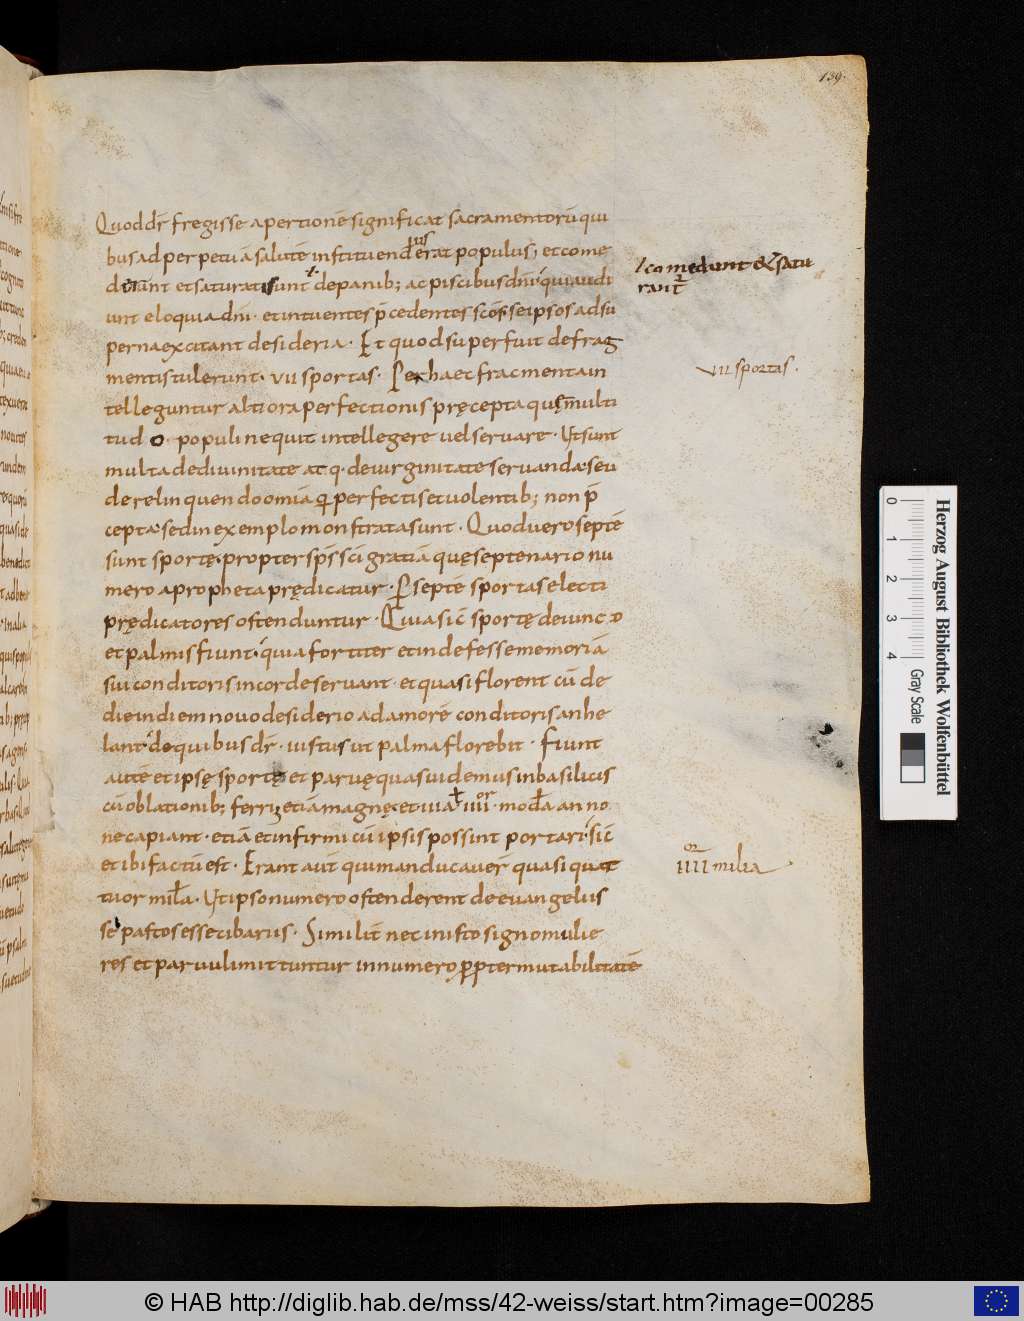 139.
Quod dr̄ fregisse apertionē significat sacramentorū qui
bus ad perpetuā salutē instituend erat populus; et come
derunt et saturati sunt de panib; ac piscibus dn̄i quia audi
unt eloquia dn̄i · et intuentes p̄cedentes sc̄os se ipsos ad su
perna excitant desideria · Et quod superfuit de frag
mentis tulerunt · VII sportas · Per haec fracmenta in
telleguntur altiora perfectionis pręcepta quę multi
tudo · populi nequit intellegere uel seruare · Ut sunt
multa de diuinitate at q · de uirginitate seruanda · seu
de relinquendo omīa q̄ perfectis et uolentib; non p̄
cepta · sed in exemplo monstrata sunt · Quod uero septē
sunt sportę · propter sp̄s sc̄i gratiā quę septenario nu
mero a propheta prędicatur · P septē sportas electi
prędicatores ostenduntur · Quia sic̄ sportę de iunco
et palmis fiunt · quia fortiter et indefesse memoriā
sui conditoris in corde seruant · et quasi florent cū de
die in diem nouo desiderio ad amorē conditoris anhe
lant · de quibus dr̄ · iustus ut palma florebit · Fiunt
autē et ipsę sportę et paruę quas uidemus in basilicis
cū oblationib; ferri; etiā magnę et uia ł IIII or mod̄a anno
ne capiant · etiā et infirmi cū ipsis possint portari · sic̄
et ibi factū est · Erant aut̄ qui manducauer̄ quasi quat
tuor mil̄a · Ut ipso numero ostenderent de euangeliis
se pastos esse cibariis · Similit̄ nec in isto signo mulie
res et paruuli mittuntur in numero p̄pter mutabilitatē
comedunt & satu
rant̄
VII sportas ·
IIII or milia
0 1 2 3 4
Gray Scale
Herzog August Bibliothek Wolfenbüttel
© HAB http://diglib.hab.de/mss/42-weiss/start.htm?image=00285